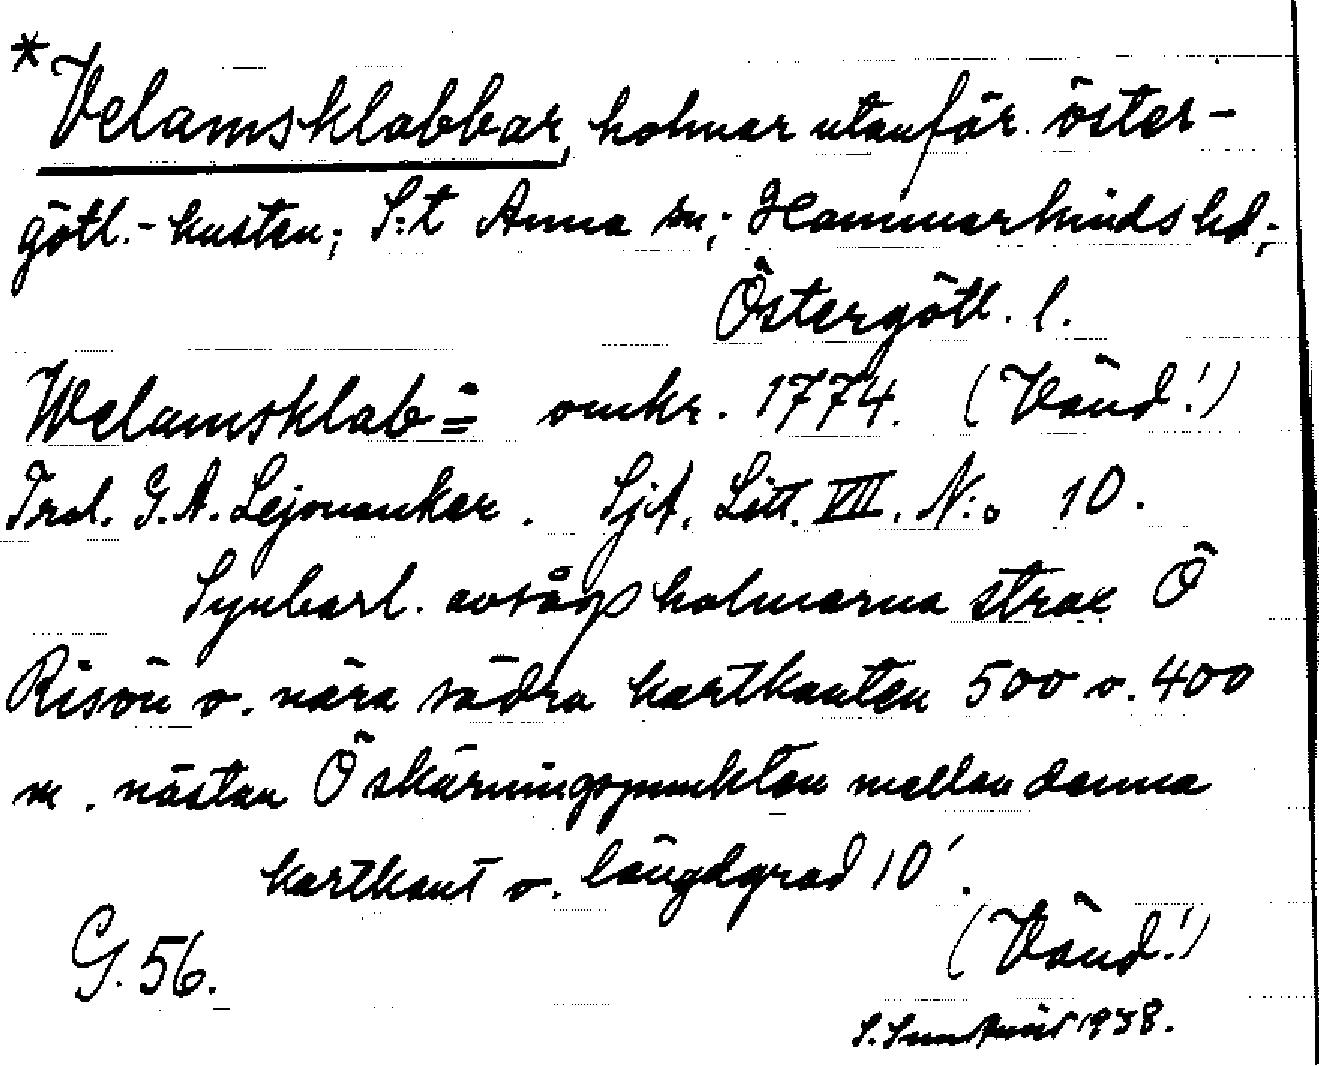 *Velamsklabbar, holmar utanför öster-
götl.-kusten; S:t Anna sn; Hammarkinds hd;
Östergötl. l.
Welamsklab= omkr. 1774. (Vänd!)
Trol. G.A. Lejonanker. Sjf. Litt. VII. N:o 10.
Synbarl. avsågs holmarna strax Ö
Risön o. nära södra kartkanten 500 o. 400
m. nästan Ö skärningspunkten mellan denna
kartkant o. längdgrad 10'.
(Vänd!)
G. 56.
S. Sundkvist 1938.